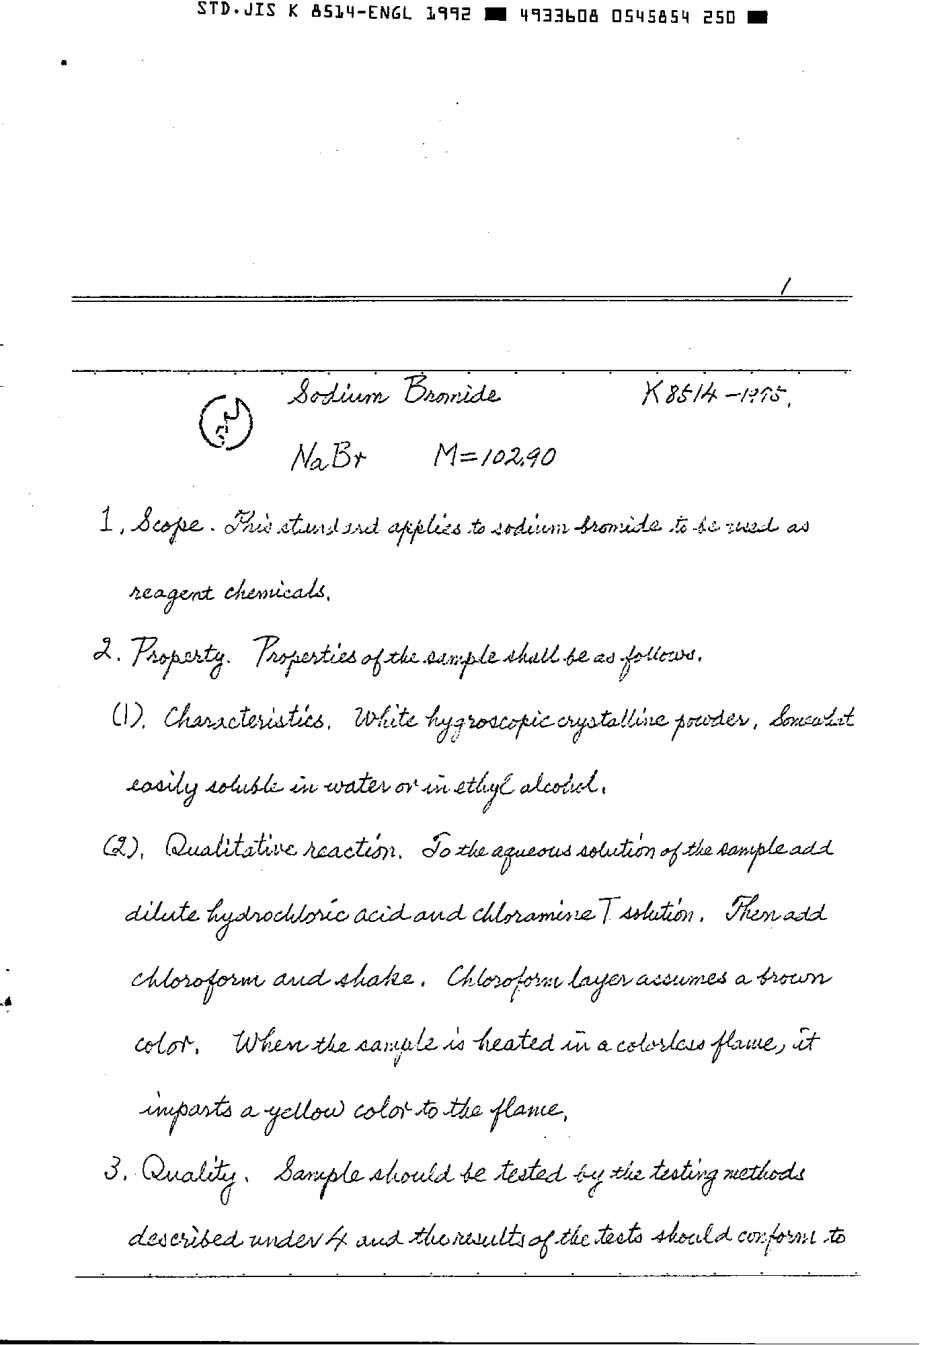 STD.JIS K 8514-ENGL 1992 ■ 4933608 0545854 250 ■
1
Sodium Bromide K8514-1975.
NaBr M=102.90
1. Scope. This standard applies to sodium bromide to be used as
reagent chemicals.
2. Property. Properties of the sample shall be as follows.
(1). Characteristics. White hygroscopic crystalline powder, Somewhat
easily soluble in water or in ethyl alcohol.
(2). Qualitative reaction. To the aqueous solution of the sample add
dilute hydrochloric acid and chloramine T solution. Then add
chloroform and shake. Chloroform layer assumes a brown
color. When the sample is heated in a colorless flame, it
imparts a yellow color to the flame.
3. Quality. Sample should be tested by the testing methods
described under 4 and the results of the tests should conform to